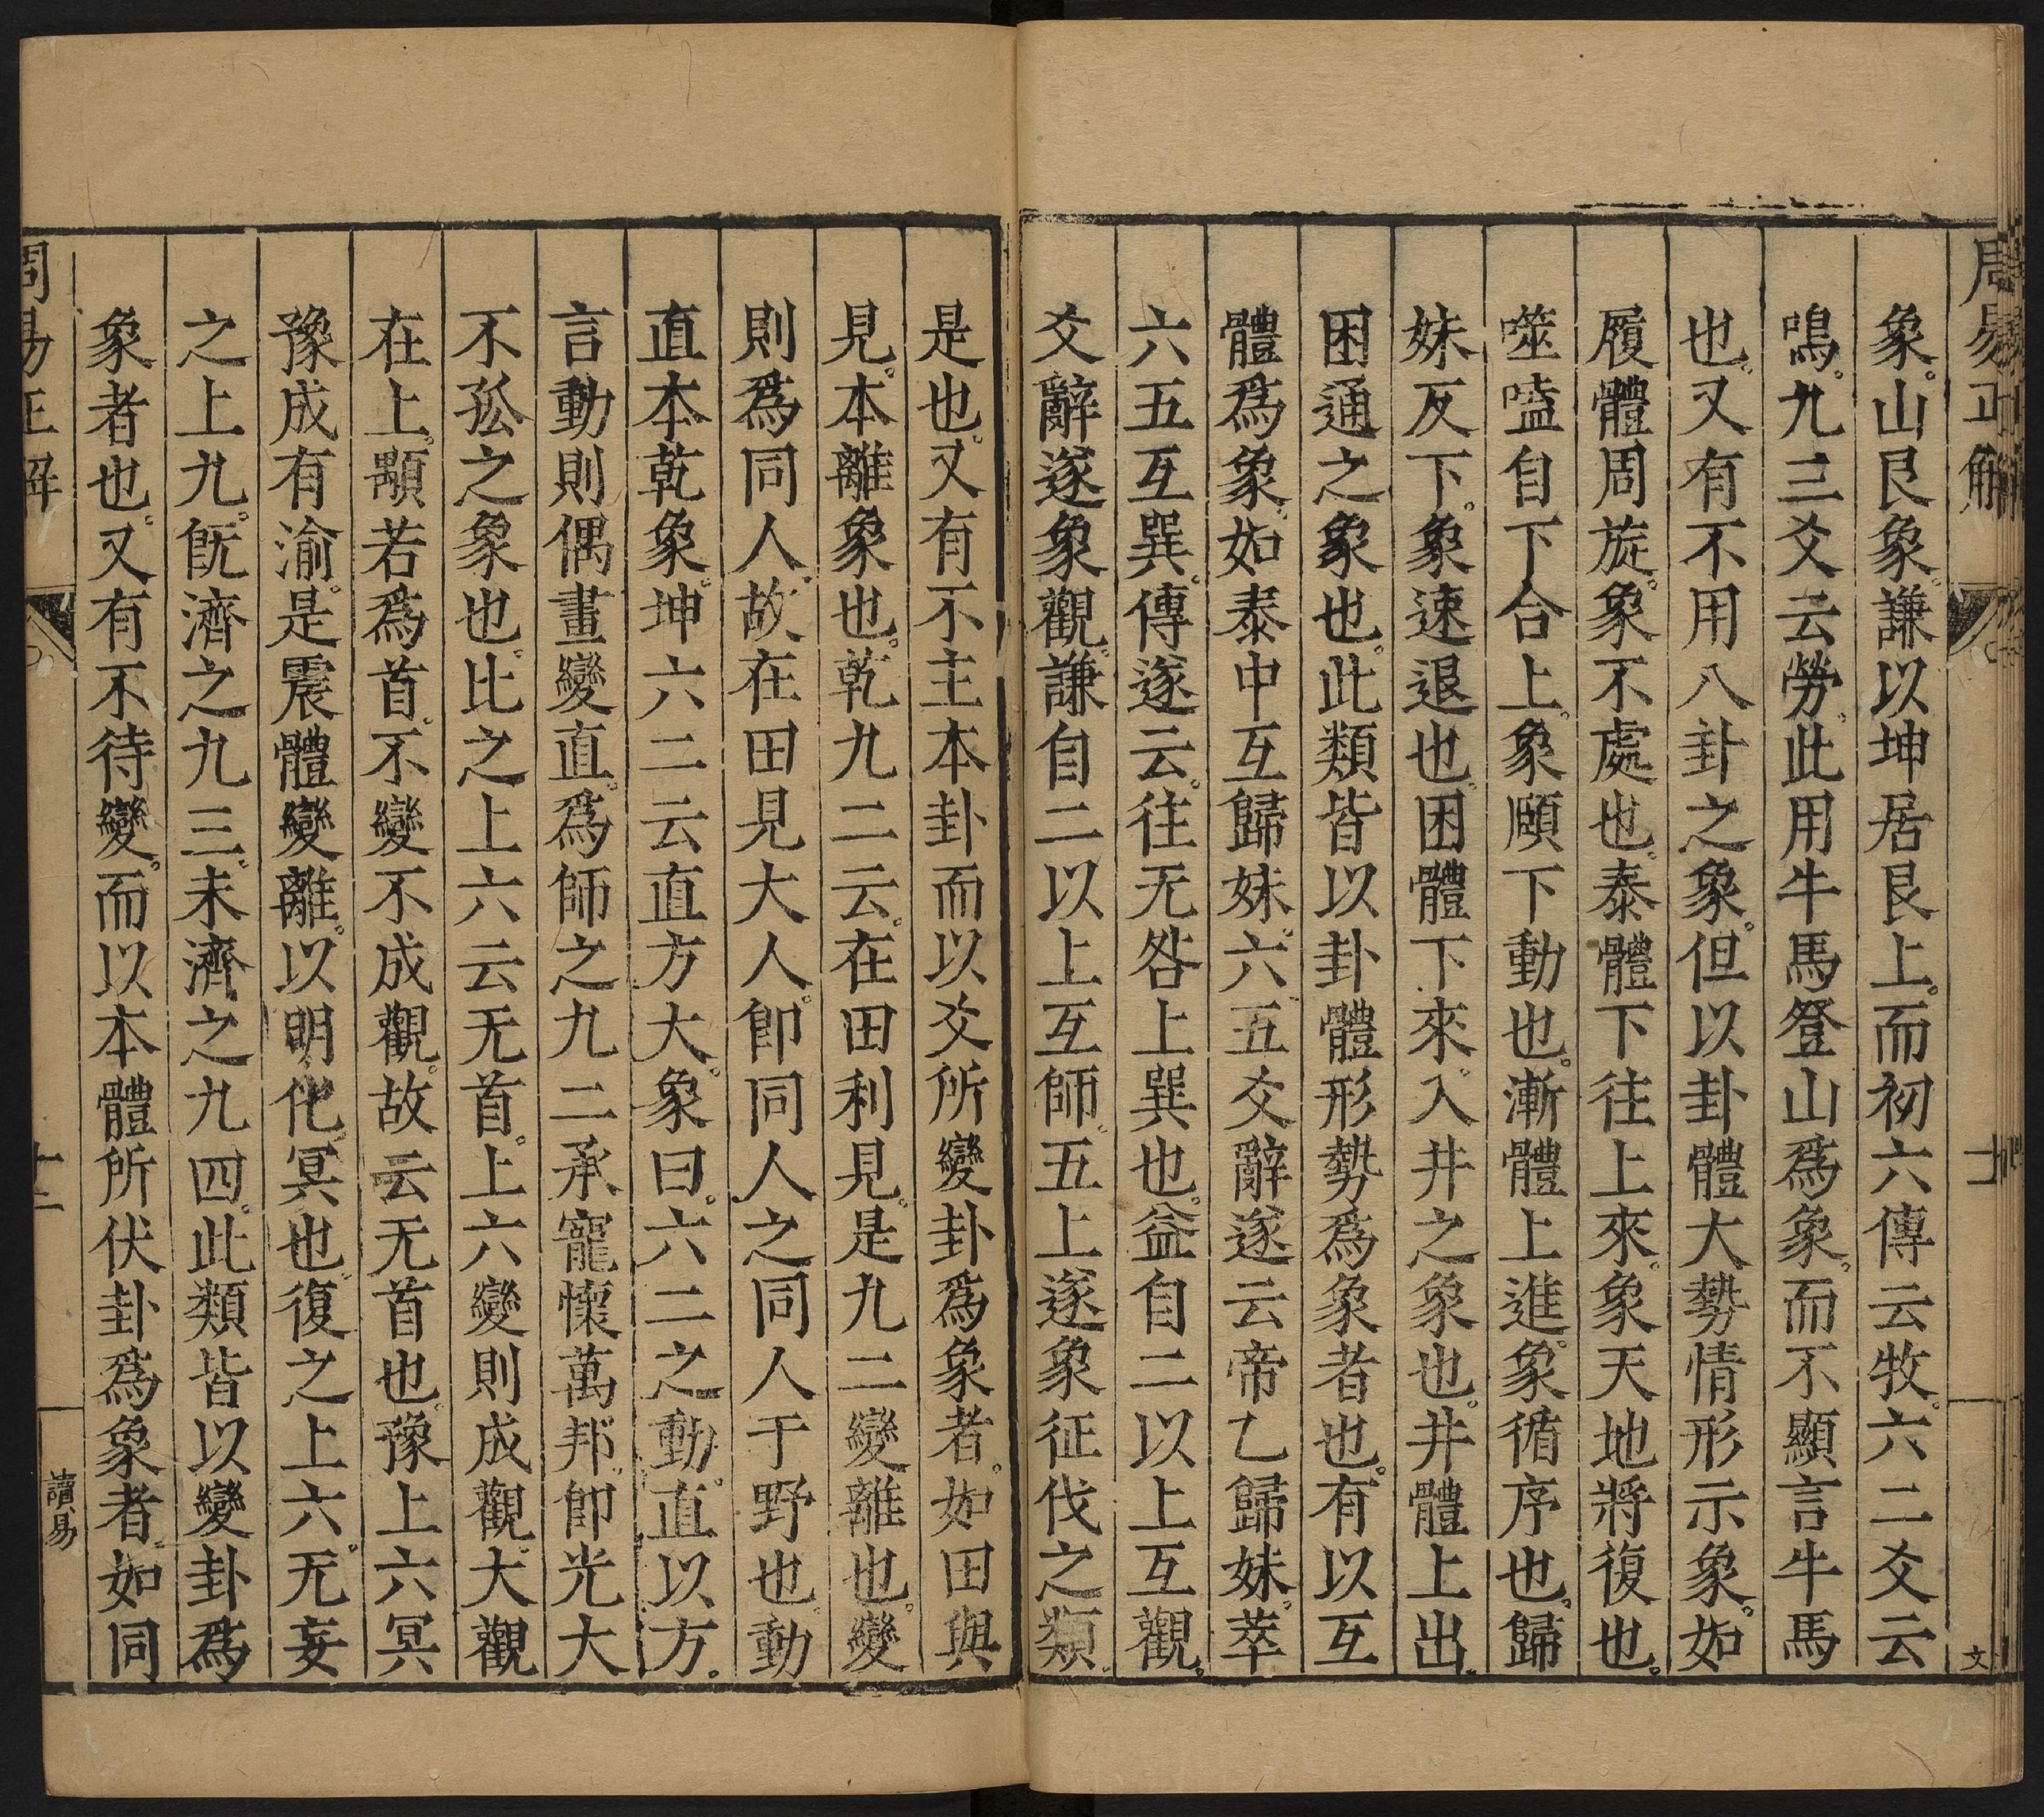 周易正解
十一
文
象。山艮象。謙以坤居艮上。而初六傳云牧。六二爻云
鳴。九三爻云勞。此用牛馬登山爲象。而不顯言牛馬
也。又有不用八卦之象。但以卦體大勢情形示象。如
履體周旋。象不處也。泰體下往上來。象天地將復也。
噬嗑自下合上。象頤下動也。漸體上進。象循序也。歸
妹反下。象速退也。困體下來。入井之象也。井體上出。
困通之象也。此類皆以卦體形勢爲象者也。有以互
體爲象。如泰中互歸妹。六五爻辭遂云帝乙歸妹。萃
六五互巽。傳遂云。往无咎上巽也。益自二以上互觀。
爻辭遂象觀。謙自二以上互師。五上遂象征伐之類。
是也。又有不主本卦而以爻所變卦爲象者。如田與
見。本離象也。乾九二云。在田利見。是九二變離也。變
則爲同人。故在田見大人。卽同人之同人于野也。動
直本乾象。坤六二云直方大。象曰。六二之動。直以方。
言動則偶畫變直。爲師之九二承寵懷萬邦。卽光大
不孤之象也。比之上六云无首。上六變則成觀。大觀
在上。顒若爲首。不變不成觀。故云无首也。豫上六冥
豫成有渝。是震體變離。以明化冥也。復之上六。无妄
之上九。旣濟之九三。未濟之九四。此類皆以變卦爲
象者也。又有不待變。而以本體所伏卦爲象者。如同
周易正解
十二
讀易